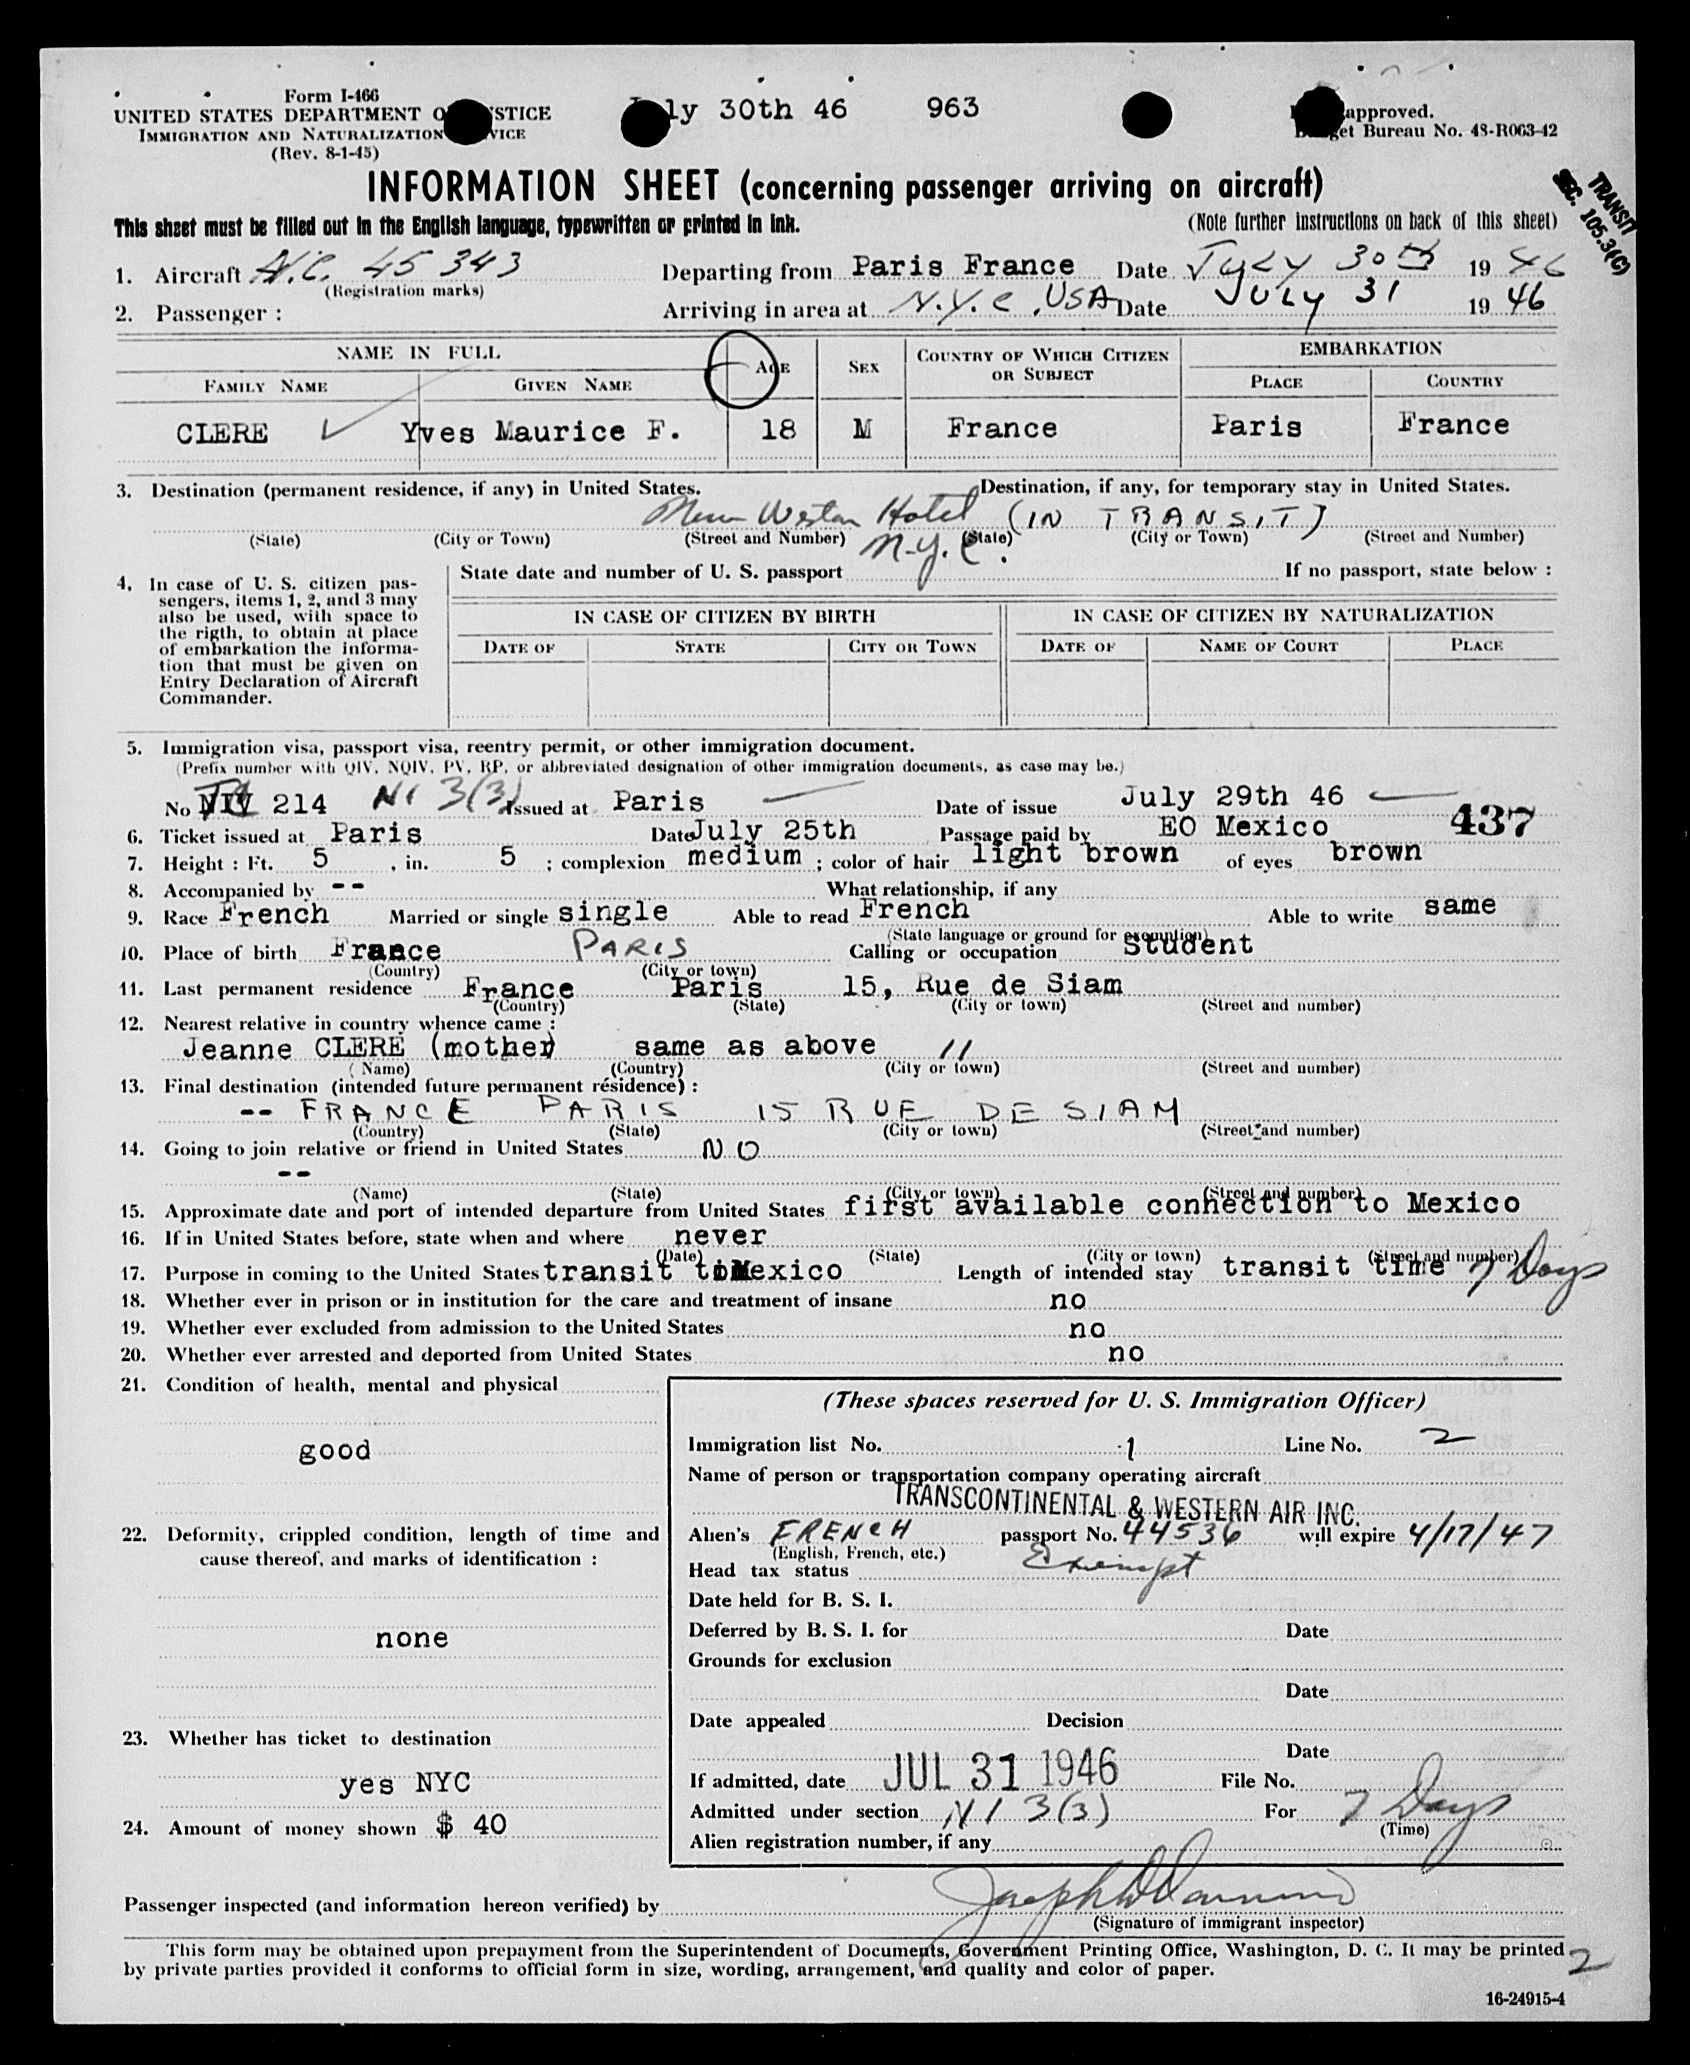 Form I-466
UNITED STATES DEPARTMENT O STICE
IMMIGRATION AND NATURALIZATION VICE
(Rev. 8-1-45)
ly 30th 46 963
approved.
et Bureau No. 43-R063-42
TRANSIT
SEC. 105.3(C)
INFORMATION SHEET (concerning passenger arriving on aircraft)
This sheet must be filled out in the English language, typewritten or printed in ink.
(Note further instructions on back of this sheet)
1. Aircraft N.C. 45343 Departing from Paris France Date July 30th 1946
(Registration marks)
2. Passenger : Arriving in area at N.Y.C, USA Date JULY 31 1946
NAME IN FULL AGE SEX COUNTRY OF WHICH CITIZEN OR SUBJECT EMBARKATION
FAMILY NAME GIVEN NAME PLACE COUNTRY
CLERE Yves Maurice F. 18 M France Paris France
3. Destination (permanent residence, if any) in United States. Destination, if any, for temporary stay in United States.
New Weston Hotel (IN TRANSIT)
(State) (City or Town) (Street and Number) (State) (City or Town) (Street and Number)
N.Y.C.
4. In case of U. S. citizen pas-
sengers, items 1, 2, and 3 may
also be used, with space to
the rigth, to obtain at place
of embarkation the informa-
tion that must be given on
Entry Declaration of Aircraft
Commander.
State date and number of U. S. passport If no passport, state below :
IN CASE OF CITIZEN BY BIRTH IN CASE OF CITIZEN BY NATURALIZATION
DATE OF STATE CITY OR TOWN DATE OF NAME OF COURT PLACE
5. Immigration visa, passport visa, reentry permit, or other immigration document.
(Prefix number with QIV, NQIV, PV, RP, or abbreviated designation of other immigration documents, as case may be.)
No NIV 214 NI 3(3) Issued at Paris Date of issue July 29th 46
6. Ticket issued at Paris Date July 25th Passage paid by EO Mexico 437
7. Height : Ft. 5 , in. 5 ; complexion medium ; color of hair light brown of eyes brown
8. Accompanied by -- What relationship, if any
9. Race French Married or single single Able to read French Able to write same
(State language or ground for exemption)
10. Place of birth France PARIS Calling or occupation Student
(Country) (City or town)
11. Last permanent residence France Paris 15, Rue de Siam
(Country) (State) (City or town) (Street and number)
12. Nearest relative in country whence came :
Jeanne CLERE (mother) same as above "
(Name) (Country) (City or town) (Street and number)
13. Final destination (intended future permanent résidence) :
-- FRANCE PARIS 15 RUE DE SIAM
(Country) (State) (City or town) (Street and number)
14. Going to join relative or friend in United States NO
--
(Name) (State) (City or town) (Street and number)
15. Approximate date and port of intended departure from United States first available connection to Mexico
16. If in United States before, state when and where never
(Date) (State) (City or town) (Street and number)
17. Purpose in coming to the United States transit to Mexico Length of intended stay transit time 7 Days
18. Whether ever in prison or in institution for the care and treatment of insane no
19. Whether ever excluded from admission to the United States no
20. Whether ever arrested and deported from United States no
21. Condition of health, mental and physical
good
22. Deformity, crippled condition, length of time and
cause thereof, and marks of identification :
none
23. Whether has ticket to destination
yes NYC
24. Amount of money shown $ 40
(These spaces reserved for U. S. Immigration Officer)
Immigration list No. 1 Line No. 2
Name of person or transportation company operating aircraft
TRANSCONTINENTAL & WESTERN AIR INC.
Alien's FRENCH passport No. 44536 will expire 4/17/47
(English, French, etc.)
Head tax status Exempt
Date held for B. S. I.
Deferred by B. S. I. for Date
Grounds for exclusion
Date
Date appealed Decision
Date
If admitted, date JUL 31 1946 File No.
Admitted under section NI 3(3) For 7 Days
(Time)
Alien registration number, if any
Passenger inspected (and information hereon verified) by Joseph
(Signature of immigrant inspector)
This form may be obtained upon prepayment from the Superintendent of Documents, Government Printing Office, Washington, D. C. It may be printed
by private parties provided it conforms to official form in size, wording, arrangement, and quality and color of paper.
2
16-24915-4